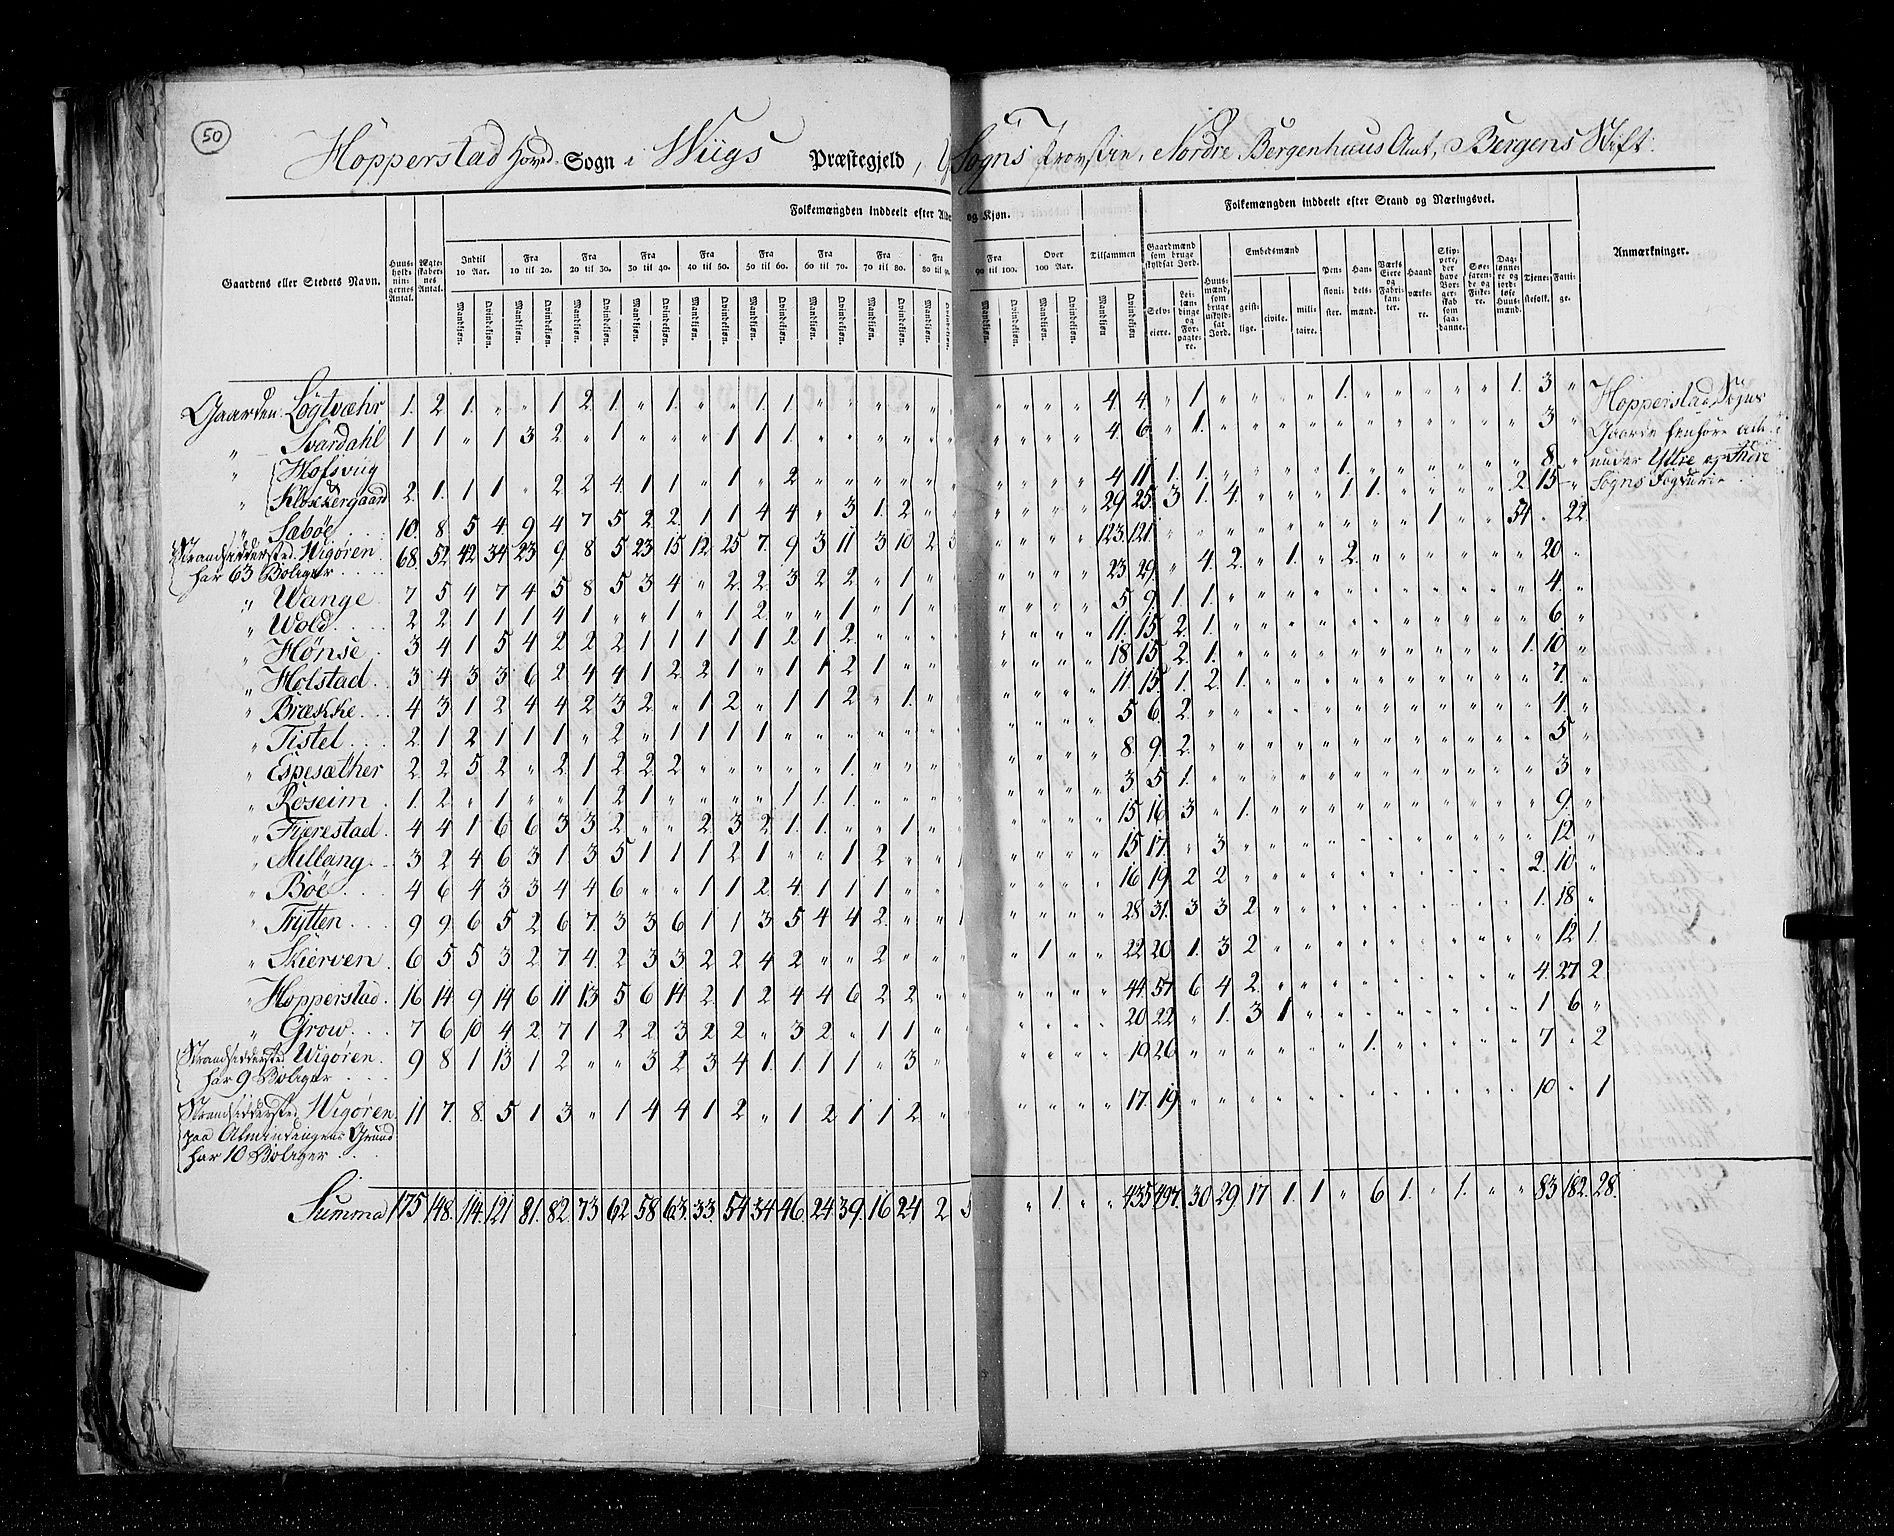 50
Hopperstad Hoved Sogn i Wiigs Præstegjeld, Sogns Provstie, Nordre Bergenhuus Amt, Bergens Stift.
Folkemængden inddeelt efter Alder og Kjøn. Folkemængden inddeelt efter Stand og Næringsvei.
Gaardens eller Stedets Navn. Huusholdningernes Antal. Ægteskabernes Antal. Indtil 10 Aar. Fra 10 til 20. Fra 20 til 30. Fra 30 til 40. Fra 40 til 50. Fra 50 til 60. Fra 60 til 70. Fra 70 til 80. Fra 80 til 90. Fra 90 til 100. Over 100 Aar. Tilsammen Gaardmænd som bruge skyldsat Jord. Huusmænd, som bruge uskyldsat Jord. Embedsmænd Pensionister. Handelsmænd. Værks Eiere og Fabrikanter. Haandværkere. Skippere, der have Borgerskab som saadanne. Søefarende og Fiskere. Daglønnere og jordløse Huusmænd. Tjenestefolk. Fattige. Anmærkninger.
Mandkjøn. Qvindekjøn. Selveiere. Leilændinge og Forpagtere. geistlige. civile. militaire.
Gaarden Løgtvæhr 1. 2. 1. " " 1 2. 1. " 1. " " 1. 1. " " " " " " " " " 4. 4. " 1. " " " " 1. " " " " " 1. 3 " Hopperstad Sogns
" Svardahl 1 1 " 1 3 2 " 1 " " " 1 1 1. " " " " " " " " " 4. 6. " 1. " " " " " " " " " " " 3 " Gaarde
" Hofsviig 8. " under Yttre og Indre
" & Klokkergaard 2. 1. 1 1 " 2 2 4 1 1 " 1 " 2 " " " " " " " " " 4 11 1. 1. " " " " 1. " " " " " 2. 15 " Sogns Fogderie
" Sæbøe 10. 8. 5 4. 9 4 7 5 2 2 1 1 4 4 " 3 1. 2 " 29 25. 3 1. 4 " " " 1 1. " " " "
Strandsidderstед Wigøren 68. 52. 42 34 23 9. 8 5 23 15 12. 25 7. 9 3 11 3 10 2 3 123. 121. " " " 1 " " 54. " 22
har 63 Boliger
" Wange 7 5 4 7 4 5 8 5 3 4 " 2. 2. 3 2 2 " 1 " 23 29. " 4. 2. " 1. " 2. " " " " " " 20 "
" Wold 2 2 1 1 1 4 1 " " 1 " 1 2. " " 1 " 1 " 5 9. 1 1. " " " " " " " " " " " 4. "
" Hønse 3 4 1 5 4 2 2 2 1 1 1 1 1 2 1 2 " " " 11. 15. 2. 1. " " " " " " " " " " " 6. "
" Holstad 3 4 3 3 6 2 4 4 1 2 2 1 " 1 1 2 1 " " 18 15 2. 1. " " " " " " " " " " 1. 10 "
" Brække 4 3 1 2 4 4 2 3 2 " 1 2 " 1 1 2 " 1. " 11. 15. 1. 2. 1. " " " " " " " " " " 7. "
" Tistel 2. 1 2 1 1 1 " 2 " 1 1 1 1 " " " " " " 5 6. 2. " " " " " " " " " " " " 4. "
" Espesæther 2 2 5 2 " 2 1 2 2 2 " " " " " 1. " " " 8. 9. 2. " " " " " " " " " " " " 5 "
" Roseim 1. 2. " 1 " " 1. 2 1 " " " " 1. 1. 1. " " " 3. 5. 1. " " " " " " " " " " " " 3 "
" Fijerestad 4 4 1 6 6 3 3 2 " " 2 3 2 1. 1. " " 1 " 15 16 3 " 1. " " " " " " " " " " 9. "
" Mellang 3 2 4 6 3 1 3 5 1 1 1 2 1 " " 1 2 " " 15. 17. " 3 " " " " " " " " " " " 12. "
" Bøe 4 6 4 3 3 4 4 6 " " 1 1 2 4 1 1 1 " " 16 19 2 2 " " " " " " " " " " 2. 10 "
" Trytten 9 9. 6 5 2 6 7. 3 3 6 1 1 3 5 4 4 2. " " 28 31. 3 3 2 " " " " " " " " " 1. 18 "
" Skierven 6 5 5 3 2 7 4. 2 3 3 2 2 4 2 " " 2 " " 1 " " 22 20 1. 3 2 " " " " " " " " " " 12 1.
" Hopperstad 16 14. 9 14 6 11 13. 5 6 14 2. 1 2 4 4 6 2 2 " 44. 57 6 4 2 " " " " " " " " " 4. 27 2
" Grow 7 6 10 4 2 7 1 2 2 3 2 2 " 3 2 " 1 1 " 20 22 " 1. 3 1 " " " " " " " " 1 6 "
Strandsidderstед Wigøren 9 8 1 13 1 2 " " 3 2 3 4 1. 1. 1 1 " 3 " 19 26 " " " " " " " 1. " " " " 7 " 2
har 9 Boliger
Strandsidderstед Wigøren 11 7. 8. 5 1 3 " 1 4 4 1 2 " 1 2 1 1 2 " 17. 19 " " " " " " " " " " " " 10 " 1
paa Almindingens Grund
har 10 Boliger
Summa 175 148. 114. 121 81. 82. 73 62 58 63. 33. 54 34 46 24 39. 16 24 2 5 " 1. " " 435 497. 30 29. 17 1. 1 " 6 1. " 1. " " 83 182. 28.